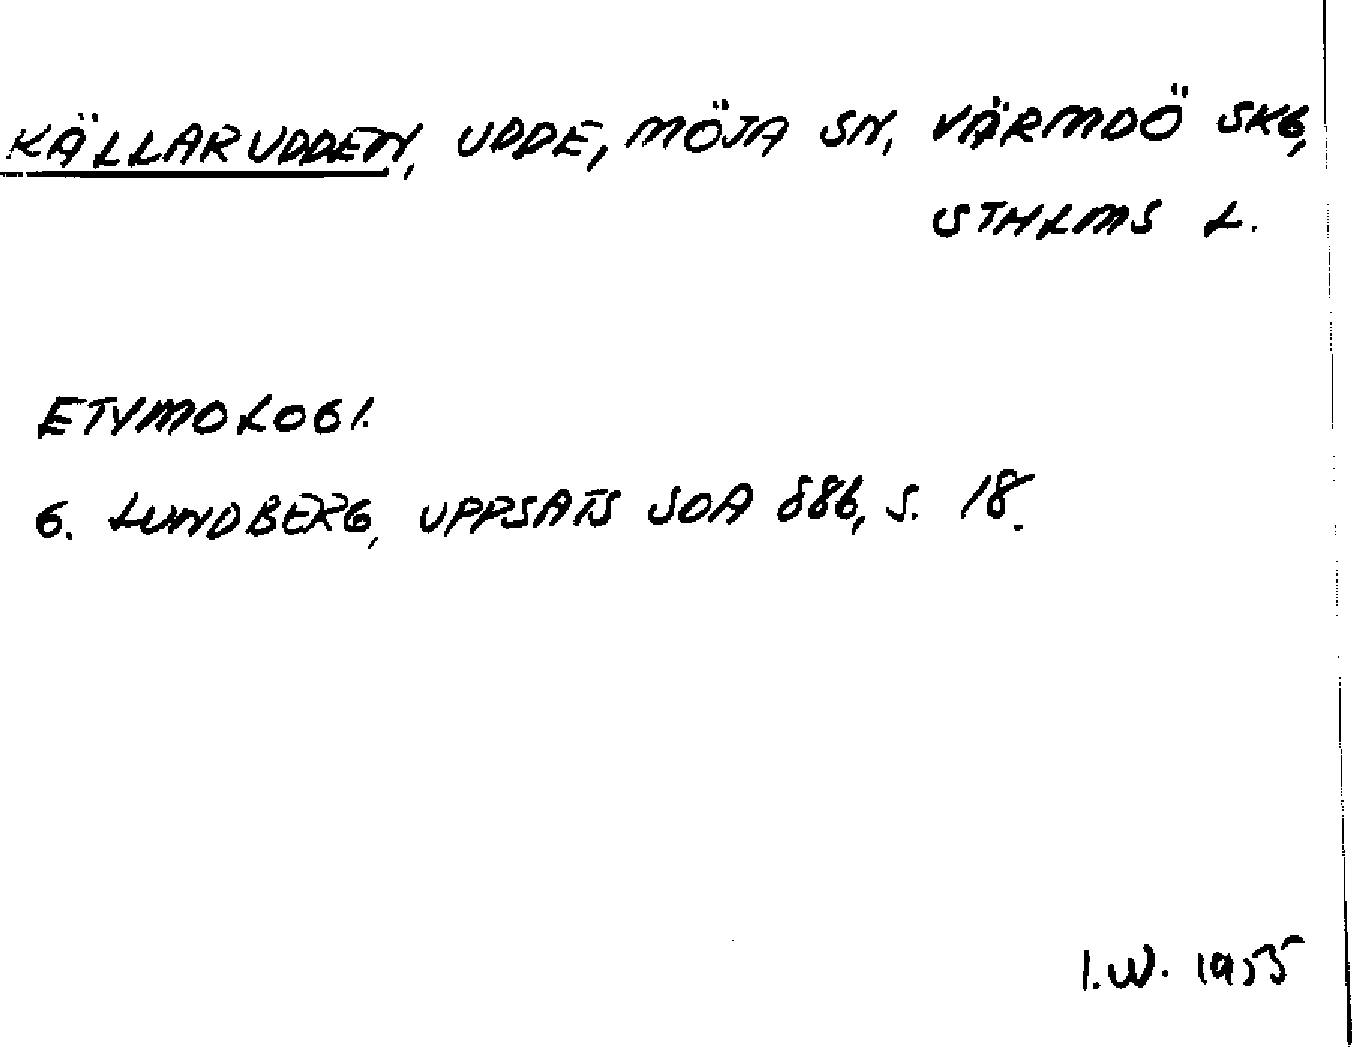 KÄLLARUDDEN, UDDE, MÖJA SN, VÄRMDÖ SKG,
STHLMS L.
ETYMOLOGI.
G. LUNDBERG, UPPSATS SOA 886, S. 18.
I.W. 1955